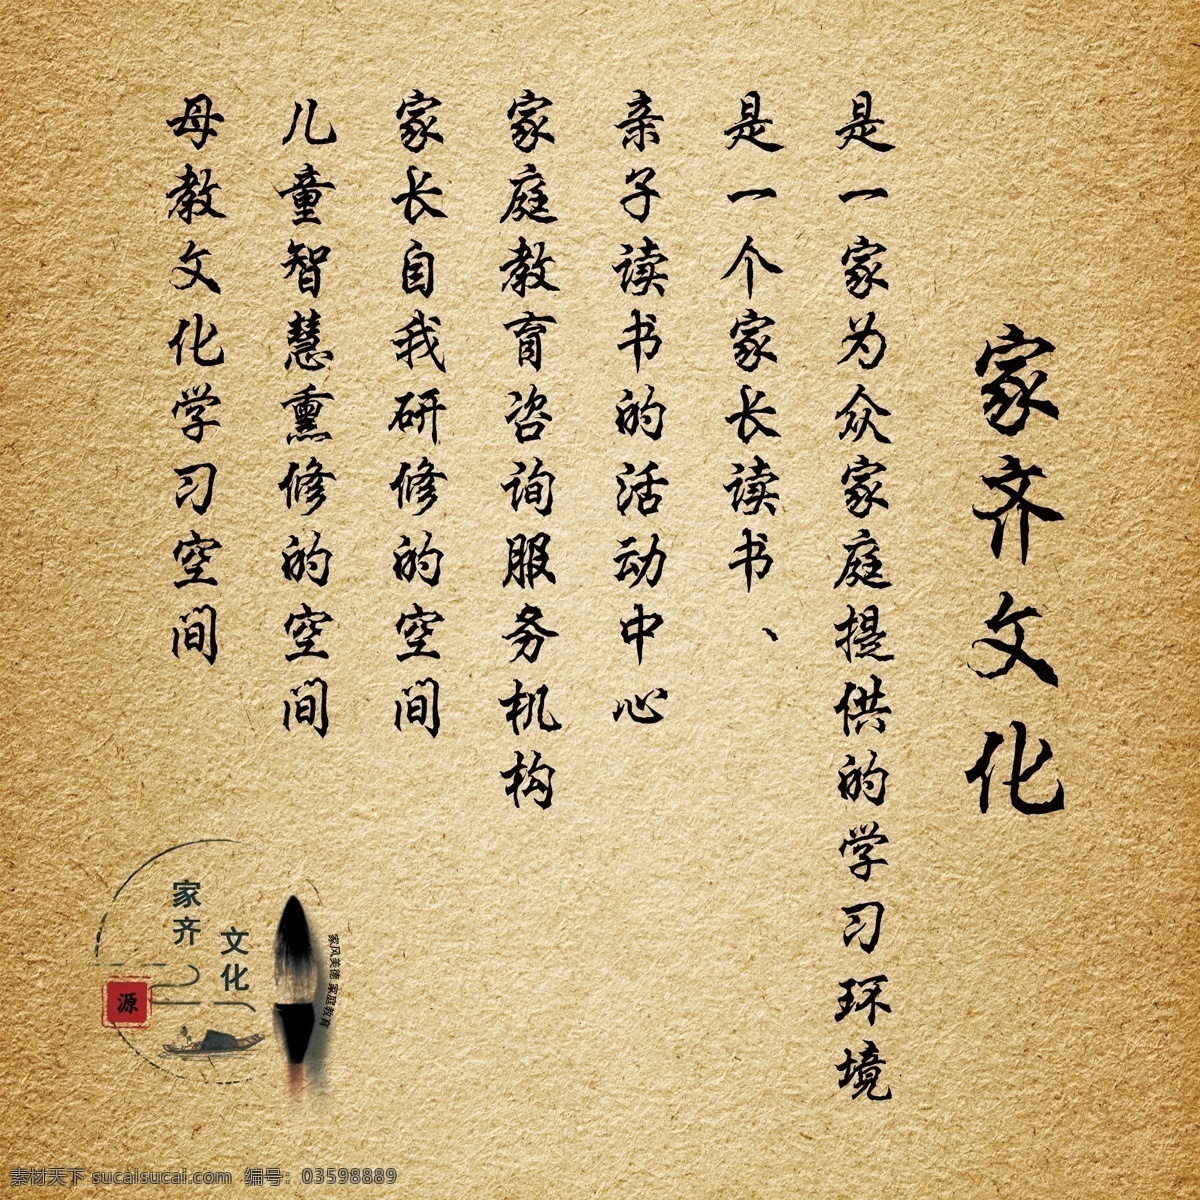 家齐文化
是一家为众家庭提供的学习环境
是一个家长读书、
亲子读书的活动中心
家庭教育咨询服务机构
家长自我研修的空间
儿童智慧熏修的空间
母教文化学习空间
家齐
文化
源
家风美德 家庭教育
素材天下 sucaisucai.com 编号：03598889